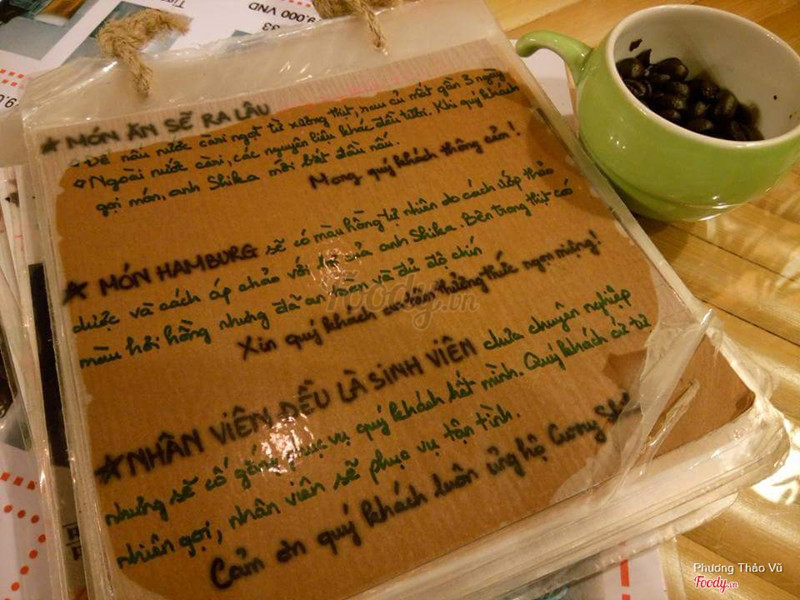 9.000 VND
★ MÓN ĂN SẼ RA LÂU
Để nấu nước càri ngọt từ xương thịt, rau củ mất gần 3 ngày
Ngoài nước càri, các nguyên liệu khác đều tươi. Khi quý khách
gọi món, anh Shika mới bắt đầu nấu.
Mong quý khách thông cảm!
★ MÓN HAMBURG sẽ có màu hồng tự nhiên do cách ướp thảo
dược và cách áp chảo với của anh Shika. Bên trong thịt có
màu hơi hồng nhưng đã an toàn và đủ độ chín
Xin quý khách an tâm thưởng thức ngon miệng!
★ NHÂN VIÊN ĐỀU LÀ SINH VIÊN chưa chuyên nghiệp
nhưng sẽ cố gắng phục vụ quý khách hết mình. Quý khách cứ tự
nhiên gọi, nhân viên sẽ phục vụ tận tình.
Cảm ơn quý khách luôn ủng hộ
Foody.vn
Phương Thảo Vũ
Foody.vn